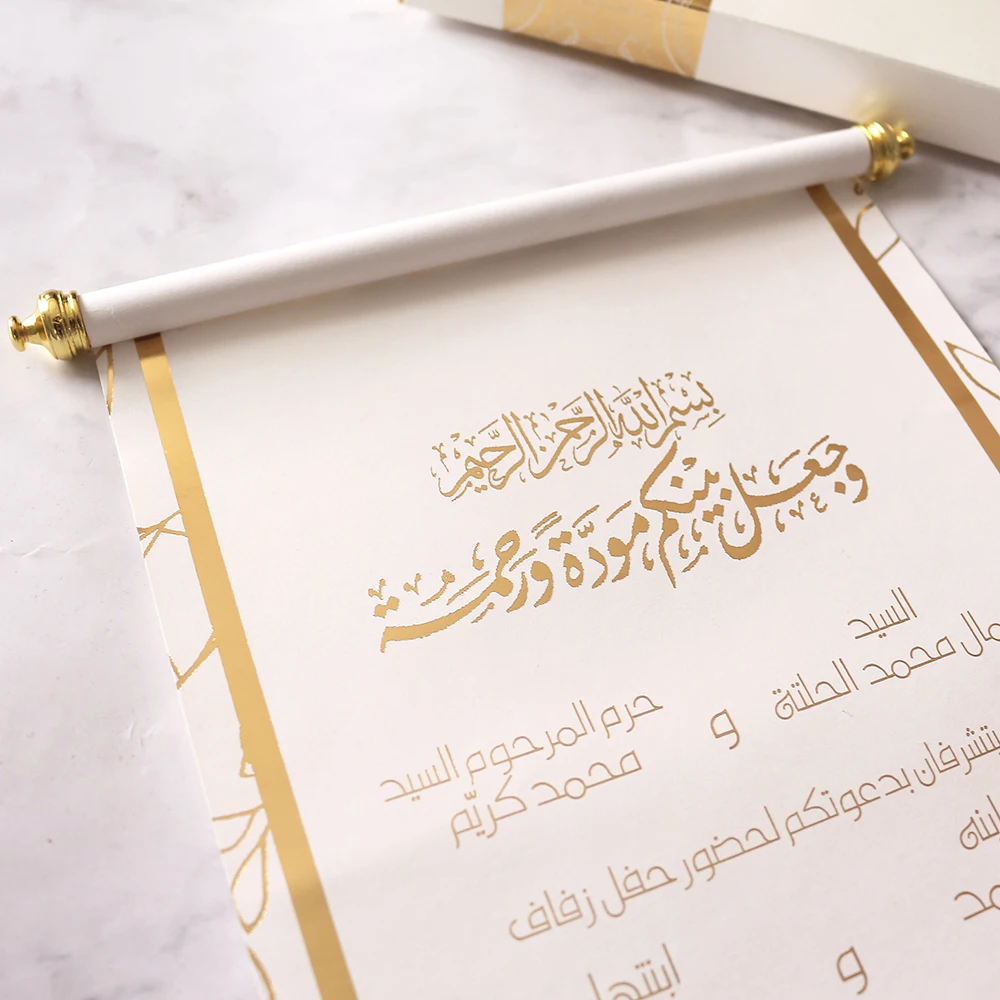 بِسْمِ اللَّهِ الرَّحْمَنِ الرَّحِيمِ
وجَعَل بَيْنَكُم مَوَدَّةً وَرَحْمَة
السيد
محمد الحلتة
و
حرم المرحوم السيد
محمد كريّم
يتشرفان بدعوتكم لحضور حفل زفاف
ابنه
و
ابنتها